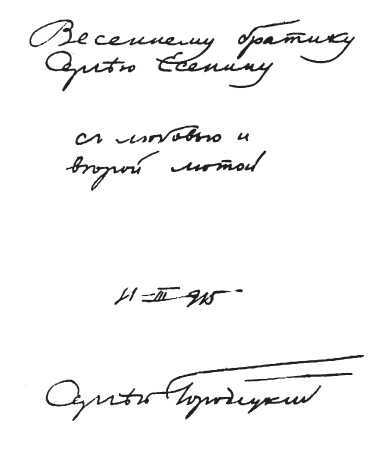 Весеннему братику
Сергѣю Есенину
съ любовью и
вѣрой лютой
11-III-915
Сергѣй Городецкий